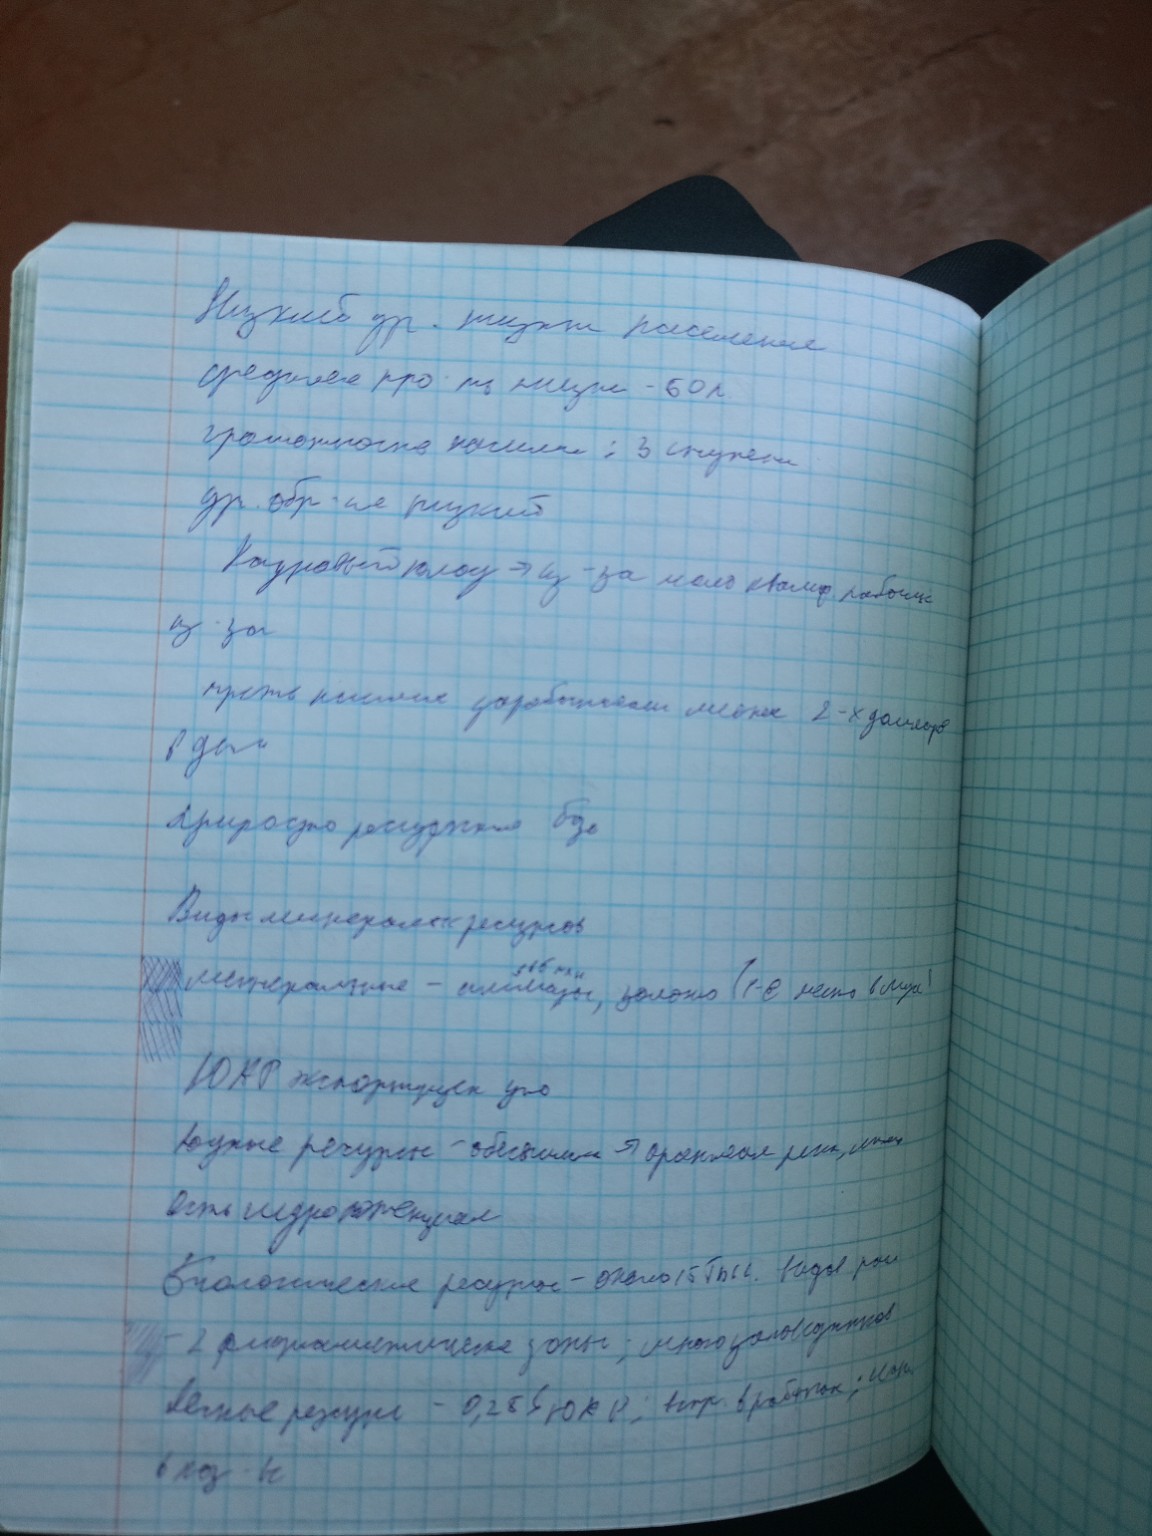 Низкий ур. жизни населения
средняя про-ть жизни - 60 л
грамотность населен : 3 ступени
ур. обр-ие низкий
Кадровый голод → из-за мало квалиф. рабочих
из-за
треть населения зарабатывает менее 2-х долларов
в день
Природно ресурсная база
Виды минеральных ресурсов
минеральные - алмазы, золото (1-е место в мире)
ЮАР экспортирует
водные ресурсы - → оранжевая река,
есть гидропотенциал
Биологические ресурсы - около 15 тыс. видов рас
- 2 флористические зоны ; много заповедников
Лесные ресурсы - ЮАР ;
в